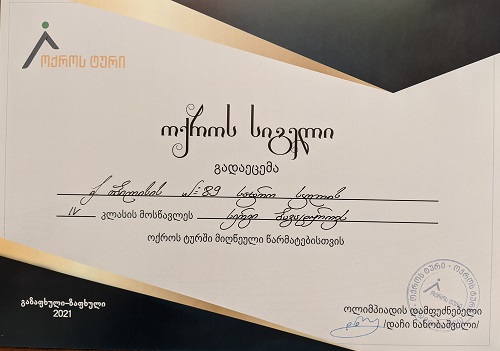 ოქროს ტური
ოქროს სიგელი
გადაეცემა
ქ. თბილისის №89 საჯარო სკოლის
IV კლასის მოსწავლეს
ოქროს ტურში მიღწეული წარმატებისთვის
გაზაფხული-ზაფხული
2021
ოლიმპიადის დამფუძნებელი
/დაჩი ნანობაშვილი/